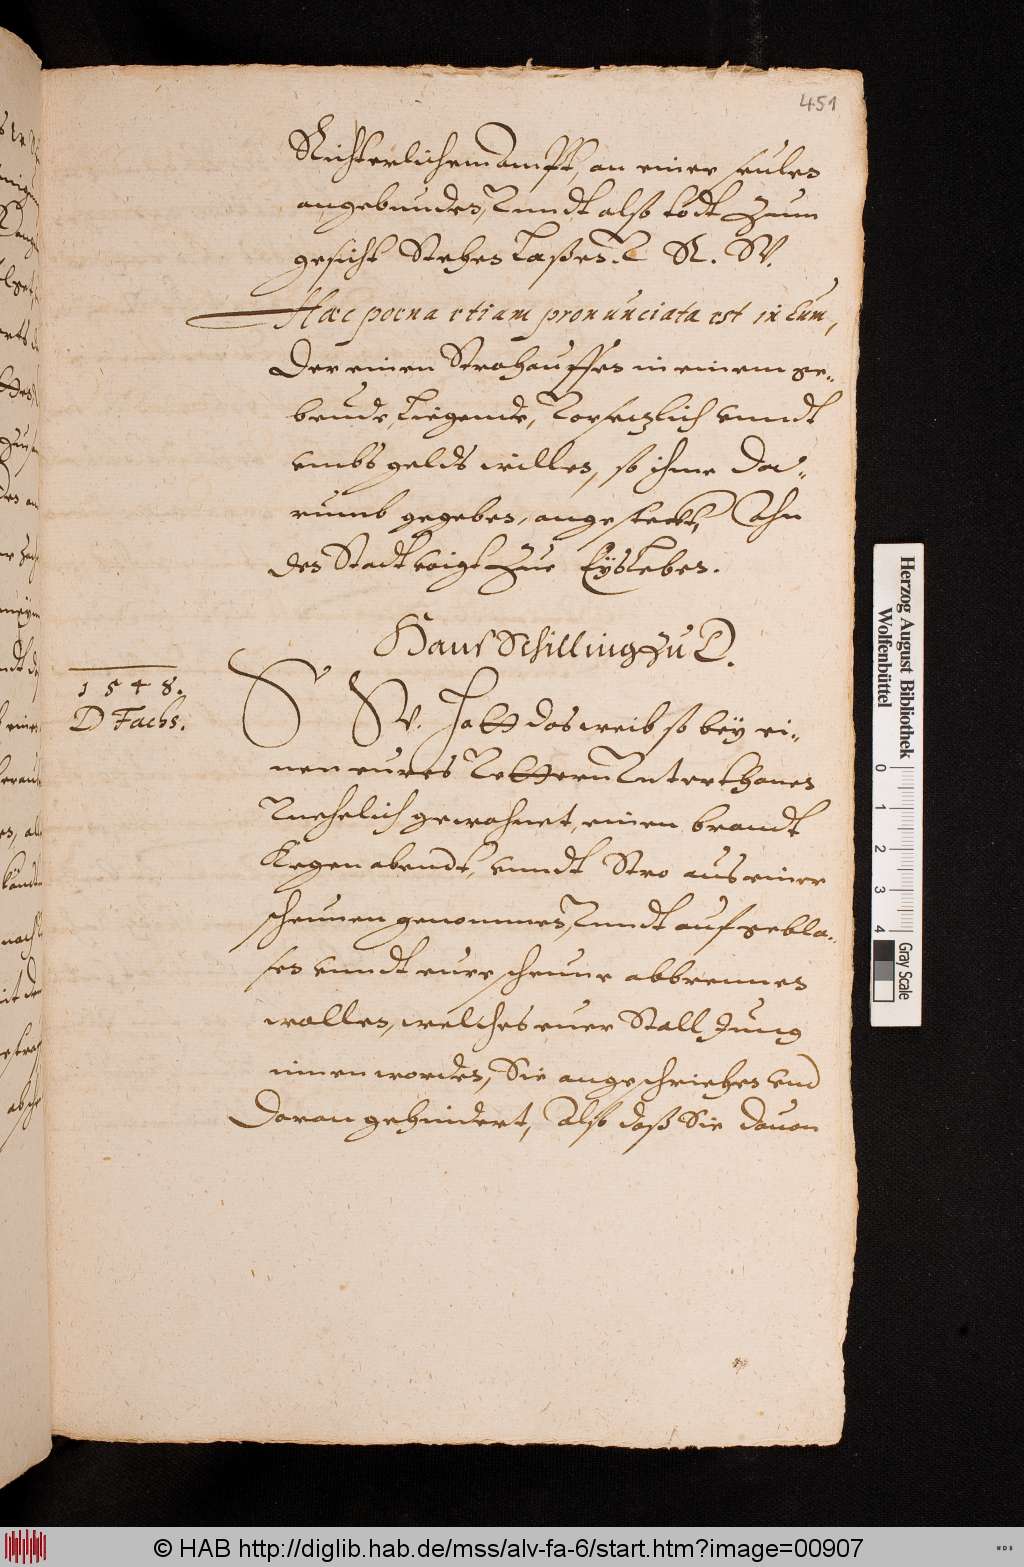 451
Richterlichem Ampft, an einer seulen
angebunden, Vnndt alß todt Zum
gesicht Stehen Laßen. V. R. W.
Haec poena etiam pronunciata est in Eum,
Der einen Strohauffen in einem ge„
beude, Liegende, Vorsetzlich vnndt
vmbs gelds willen, so ihme Da„
rumb gegeben, angesteckt, Ahn
den Stadtvoigt Zue Eysleben.
Hans Schilling zu D.
1548.
D Fachs.
S W. Hatt das weib so bey ei„
nem eures Vettern Vnterthanen
Vnehelich gewohnet, einen brandt
Kegen abendt, vnndt Stro aus einer
scheunen genommen, Vnndt aufgebla„
sen vnndt eure scheune abbrennen
wollen, welches euer Stall Jung
innen worden, Sie angeschriehen vnd
Daran gehindert, Alß daß Sie dauon
Herzog August Bibliothek
Wolfenbüttel
0 1 2 3 4
Gray Scale
© HAB http://diglib.hab.de/mss/alv-fa-6/start.htm?image=00907